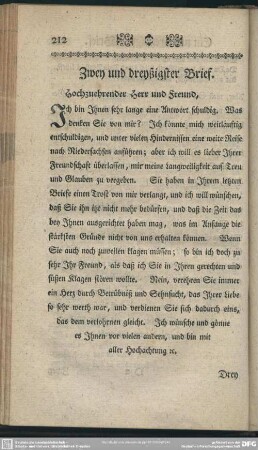 212
Zwey und dreyßigster Brief.
Hochzuehrender Herr und Freund,
Ich bin Ihnen sehr lange eine Antwort schuldig. Was
denken Sie von mir? Ich könnte mich weitläuftig
entschuldigen, und unter vielen Hindernissen eine neue Reise
nach Niedersachsen anführen; aber ich will es lieber Ihrer
Freundschaft überlassen, mir meine Langweiligkeit auf Treu
und Glauben zu vergeben. Sie haben in Ihrem letzten
Briefe einen Trost von mir verlangt, und ich will wünschen,
daß Sie ihn itzt nicht mehr bedürfen, und daß die Zeit das
bey Ihnen ausgerichtet haben mag, was im Anfange die
stärksten Gründe nicht von uns erhalten können. Wenn
Sie auch noch zuweilen klagen müssen; so bin ich doch zu
sehr Ihr Freund, als daß ich Sie in Ihren gerechten und
süßen Klagen stören wollte. Nein, verehren Sie immer
ein Herz durch Betrübniß und Sehnsucht, das Ihrer Liebe
so sehr werth war, und verdienen Sie sich dadurch eins,
das dem verlohrnen gleicht. Ich wünsche und gönne
es Ihnen vor vielen andern, und bin mit
aller Hochachtung ꝛc.
Drey
DFG